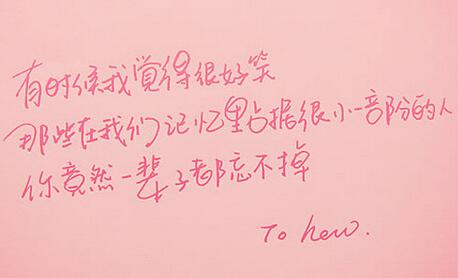 有时候我觉得很好笑
那些在我们记忆里占据很小一部份的人
你竟然一辈子都忘不掉
To hew.